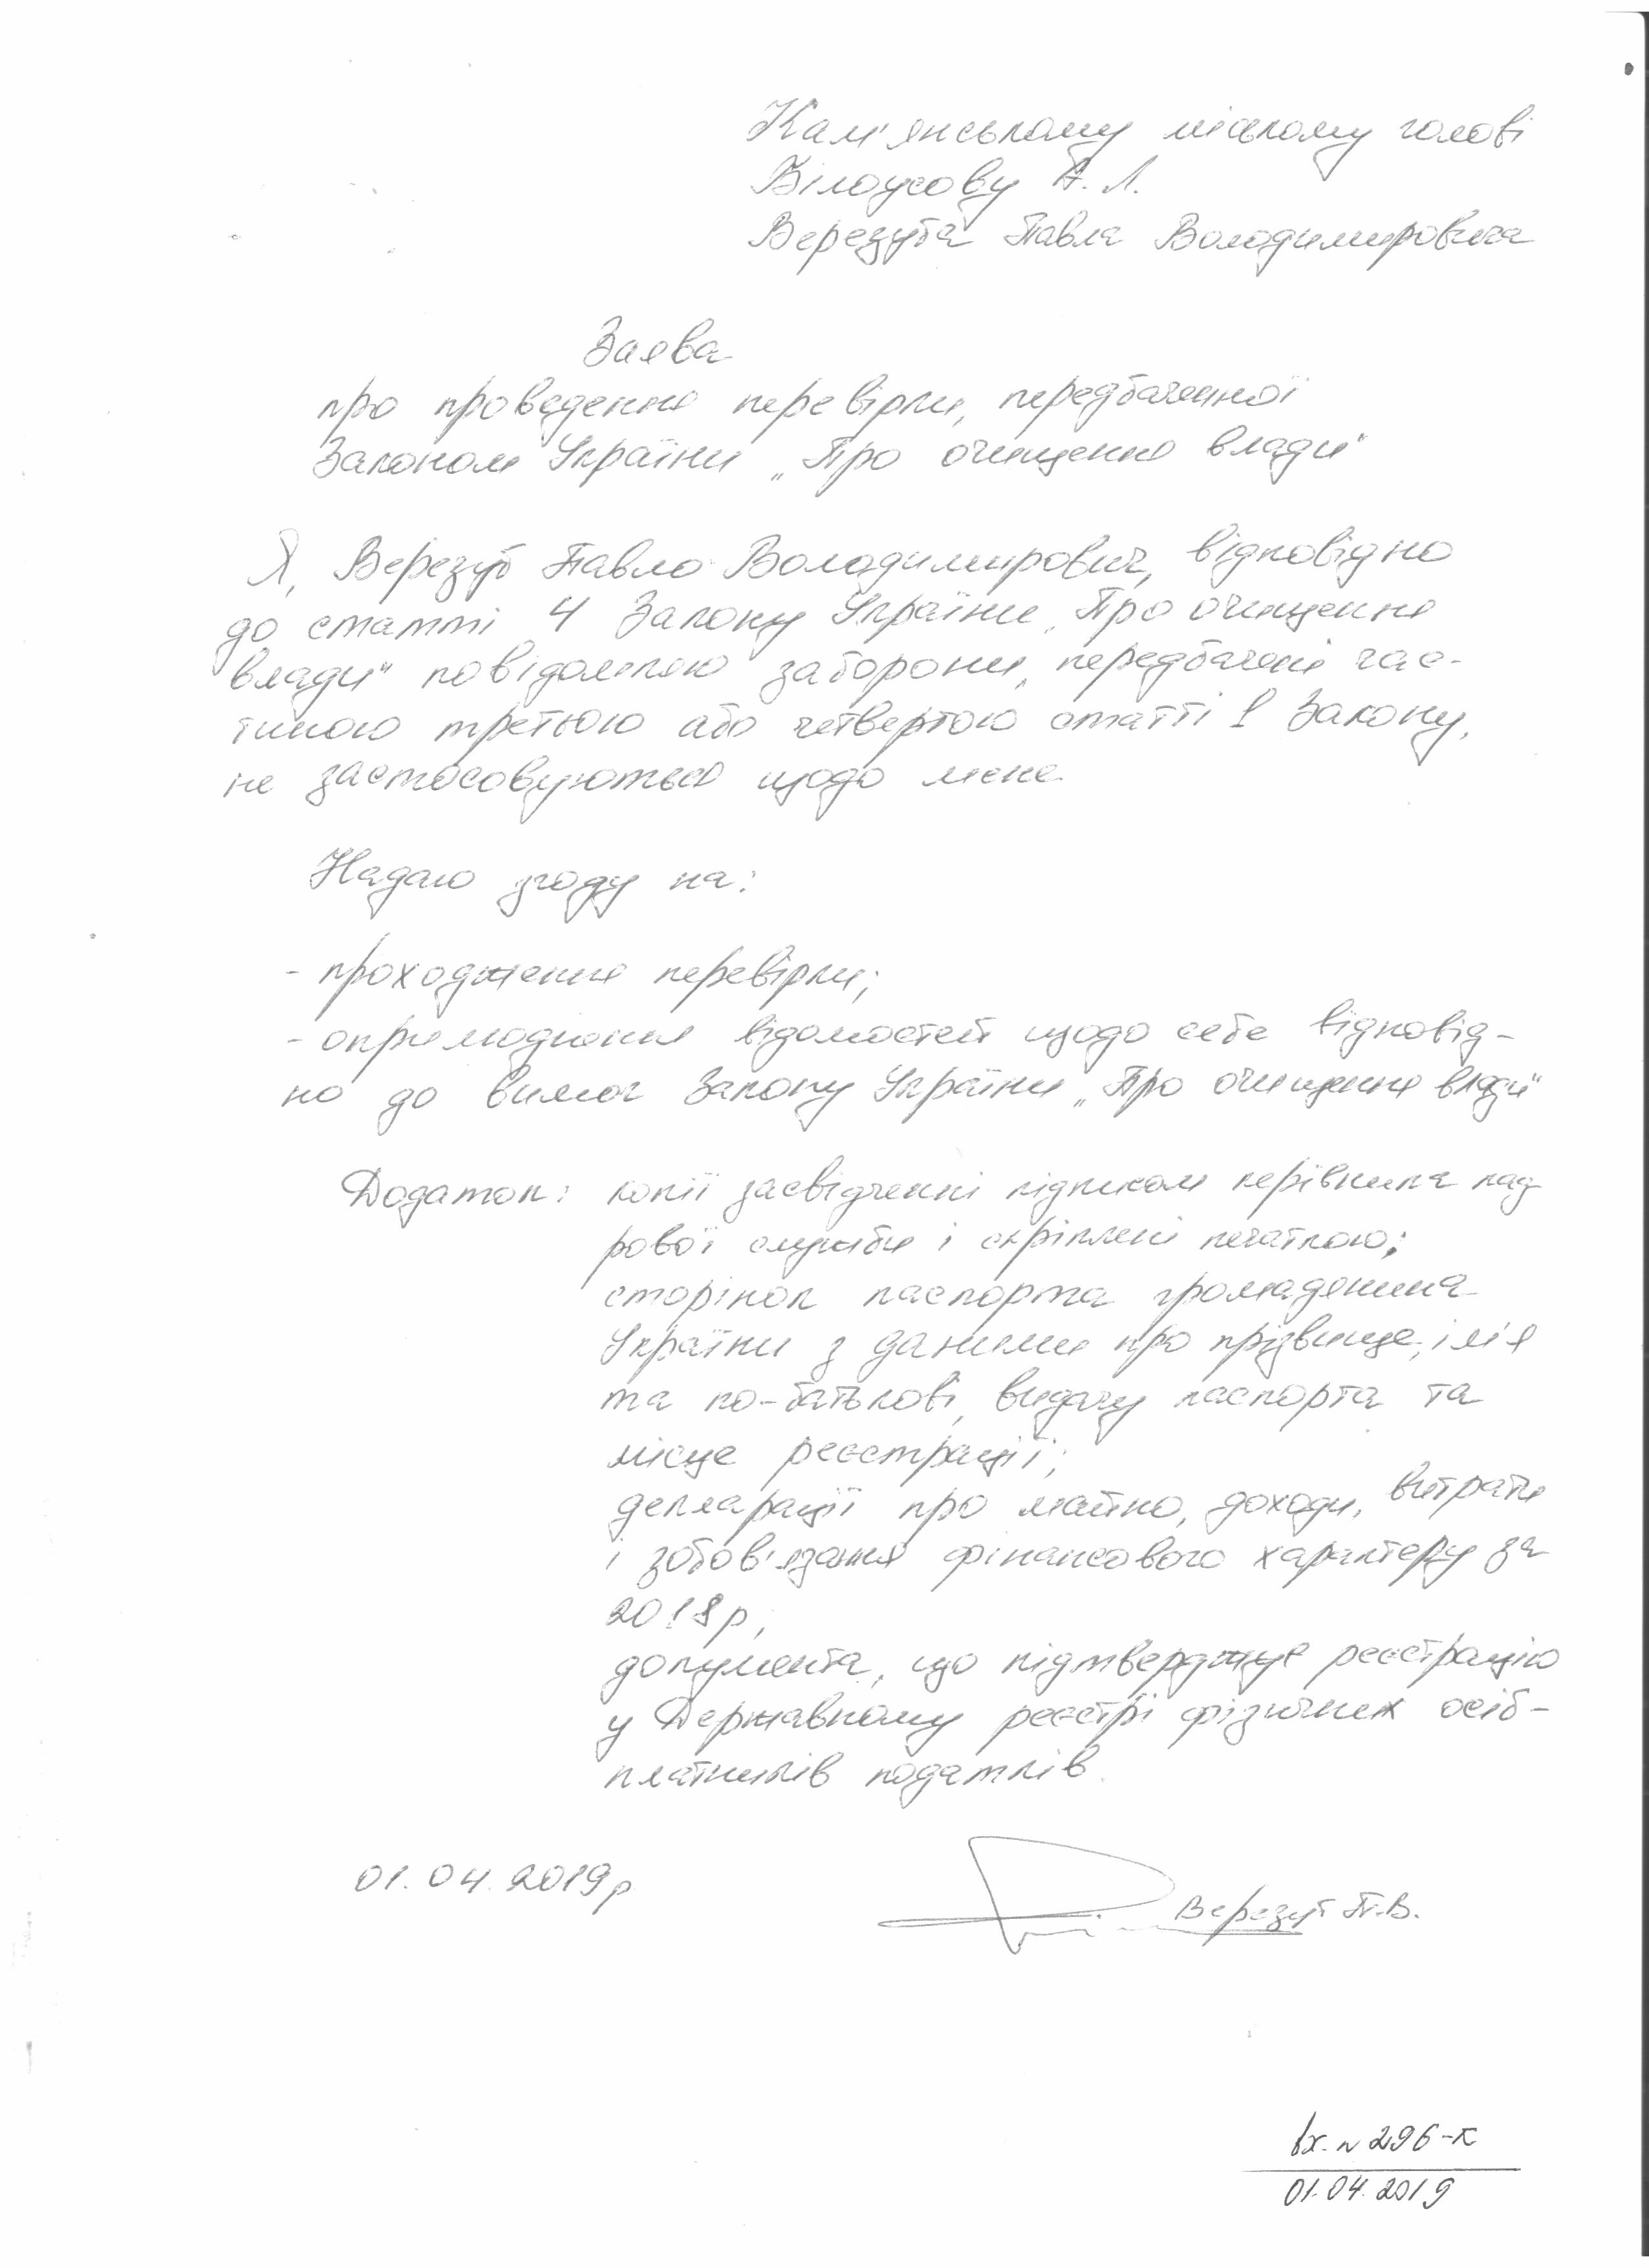 Кам'янському міському голові
Білоусову А. Л.
Верезуба Павла Володимировича
Заява
про проведення перевірки, передбаченної
Законом України „Про очищення влади"
Я, Верезуб Павло Володимирович, відповідно
до статті 4 Закону України „Про очищення
влади" повідомляю заборони, передбачені час-
тиною третьою або четвертою статті 1 Закону,
не застосовуються щодо мене.
Надаю згоду на:
- проходження перевірки;
- оприлюднення відомостей щодо себе відповід-
но до вимог Закону України „Про очищення влади"
Додаток: копії засвідченні підписом керівника кад
рової служби і скріплені печаткою:
сторінок паспорта громадянина
України з даними про прізвище, ім'я
та по-батькові, видачу паспорта та
місце реєстрації;
декларації про майно, доходи, витрати
і зобов'язання фінансового характеру за
2018р,
документа, що підтверджує реєстрацію
у Державному реєстрі фізичних осіб-
платників податків.
01.04.2019р
Верезуб П.В.
вх. № 296-к
01.04.2019